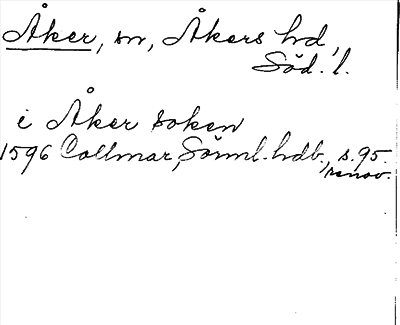 Åker, sn, Åkers hd,
Söd. l.
i Åker soken
1596 Collmar, Sörml. hdb., s. 95.
renov.